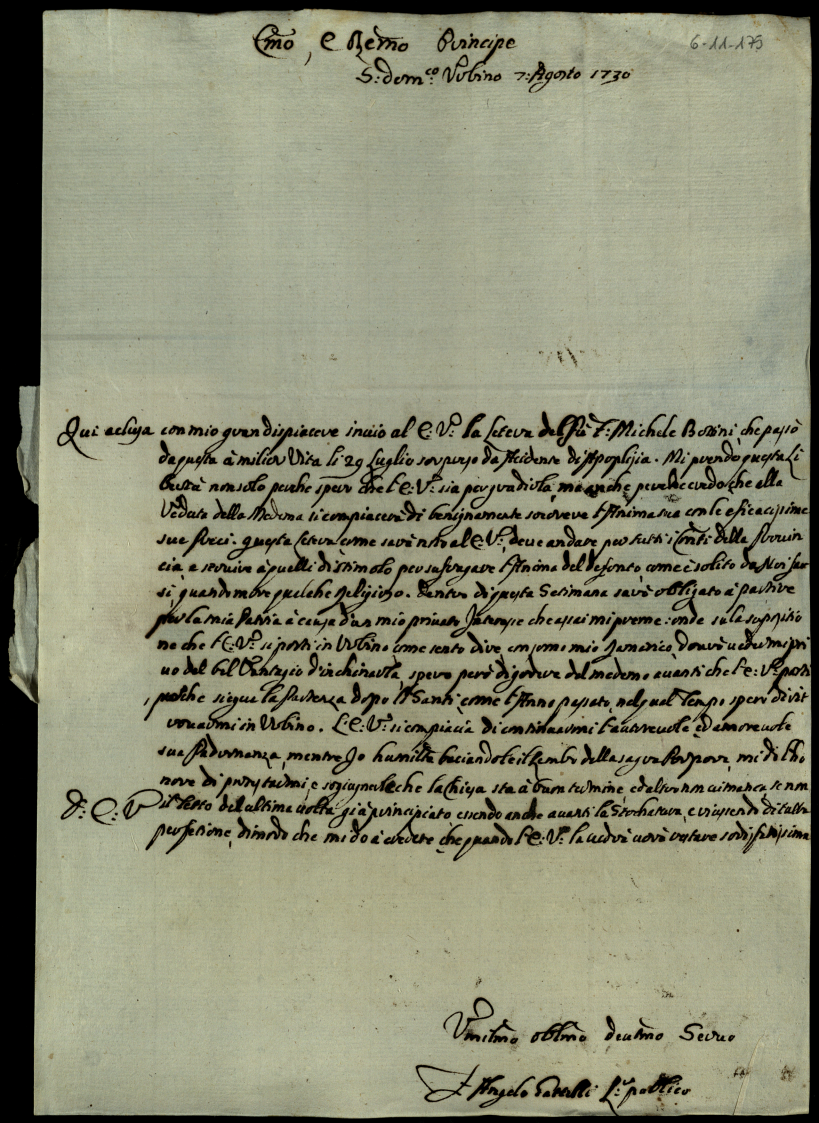 Emo, e Remo Principe
6-11-175
S: Dom:co Urbino 7: Agosto 1730
Qui aclusa con mio gran dispiacere invio al E: V: la Letera del fù F: Michele Bonini che passò
da questa à milior Vita li 29 Luglio sorpreso da Acidente di Apoplesia. Mi prendo questa Li
bertà non solo perche spero che l'E: V: sia per gradirla, ma anche perche credo, che alla
Veduta della Medema si compiacerà di benignamente socorere l'Anima sua con le eficacissime
sue Preci. questa Letera come sarà noto al E: V: deve andare per tutti i Conti della Provin
cia, e servire à quelli di stimolo per sufragare l'Anima del defonto come è solito da Noi far
si, quando more qualche Religioso. Dentro di questa Setimana sarò obligato à partire
per la mia Patria à causa d'un mio privato Interesse che assai mi preme: onde su la supositio
ne che l'E: V: si porti in Urbino come sento dire, con somo mio Ramarico, dovrò vedermi pri
vo del bel Vantagio d'inchinarla, spero però di godere del medemo avanti che l'E: V: parti
, perche siegua la Partenza dopo li Santi come l'Anno passato, nel qual Tempo sperò di rit
rovarmi in Urbino. L'E: V: si compiacia di continuarmi l'autorevole ed amorevole
sua Padronanza, mentre Io humilte baciandole il Lembo della sagra Porpora, mi dò l'ho
nore di protestarmi, e sogiugnerle che la Chiesa sta à buon termine, ed altro non ci manca se non
D: E: V: il Resto del ultima volta già principiato essendo anche avanti la Stochatura, e riuscendo di tutta
perfetione, dimodo che mi dò à credere che quando l'E: V: la vedrà vorà restare sodisfatissima
Umilmo oblmo devtmo Servo
F Angelo